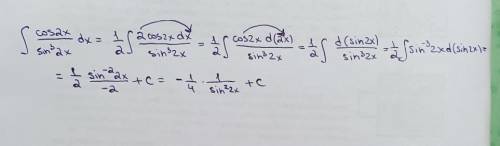 ∫ cos2x/sin³2x dx = 1/2 ∫ 2cos2x dx/sin³2x = 1/2 ∫ cos2x d(2x)/sin³2x = 1/2 ∫ d(sin2x)/sin³2x = 1/2 ∫ sin⁻³2x d(sin2x) =
= 1/2 sin⁻²2x/-2 + C = - 1/4 · 1/sin²2x + C